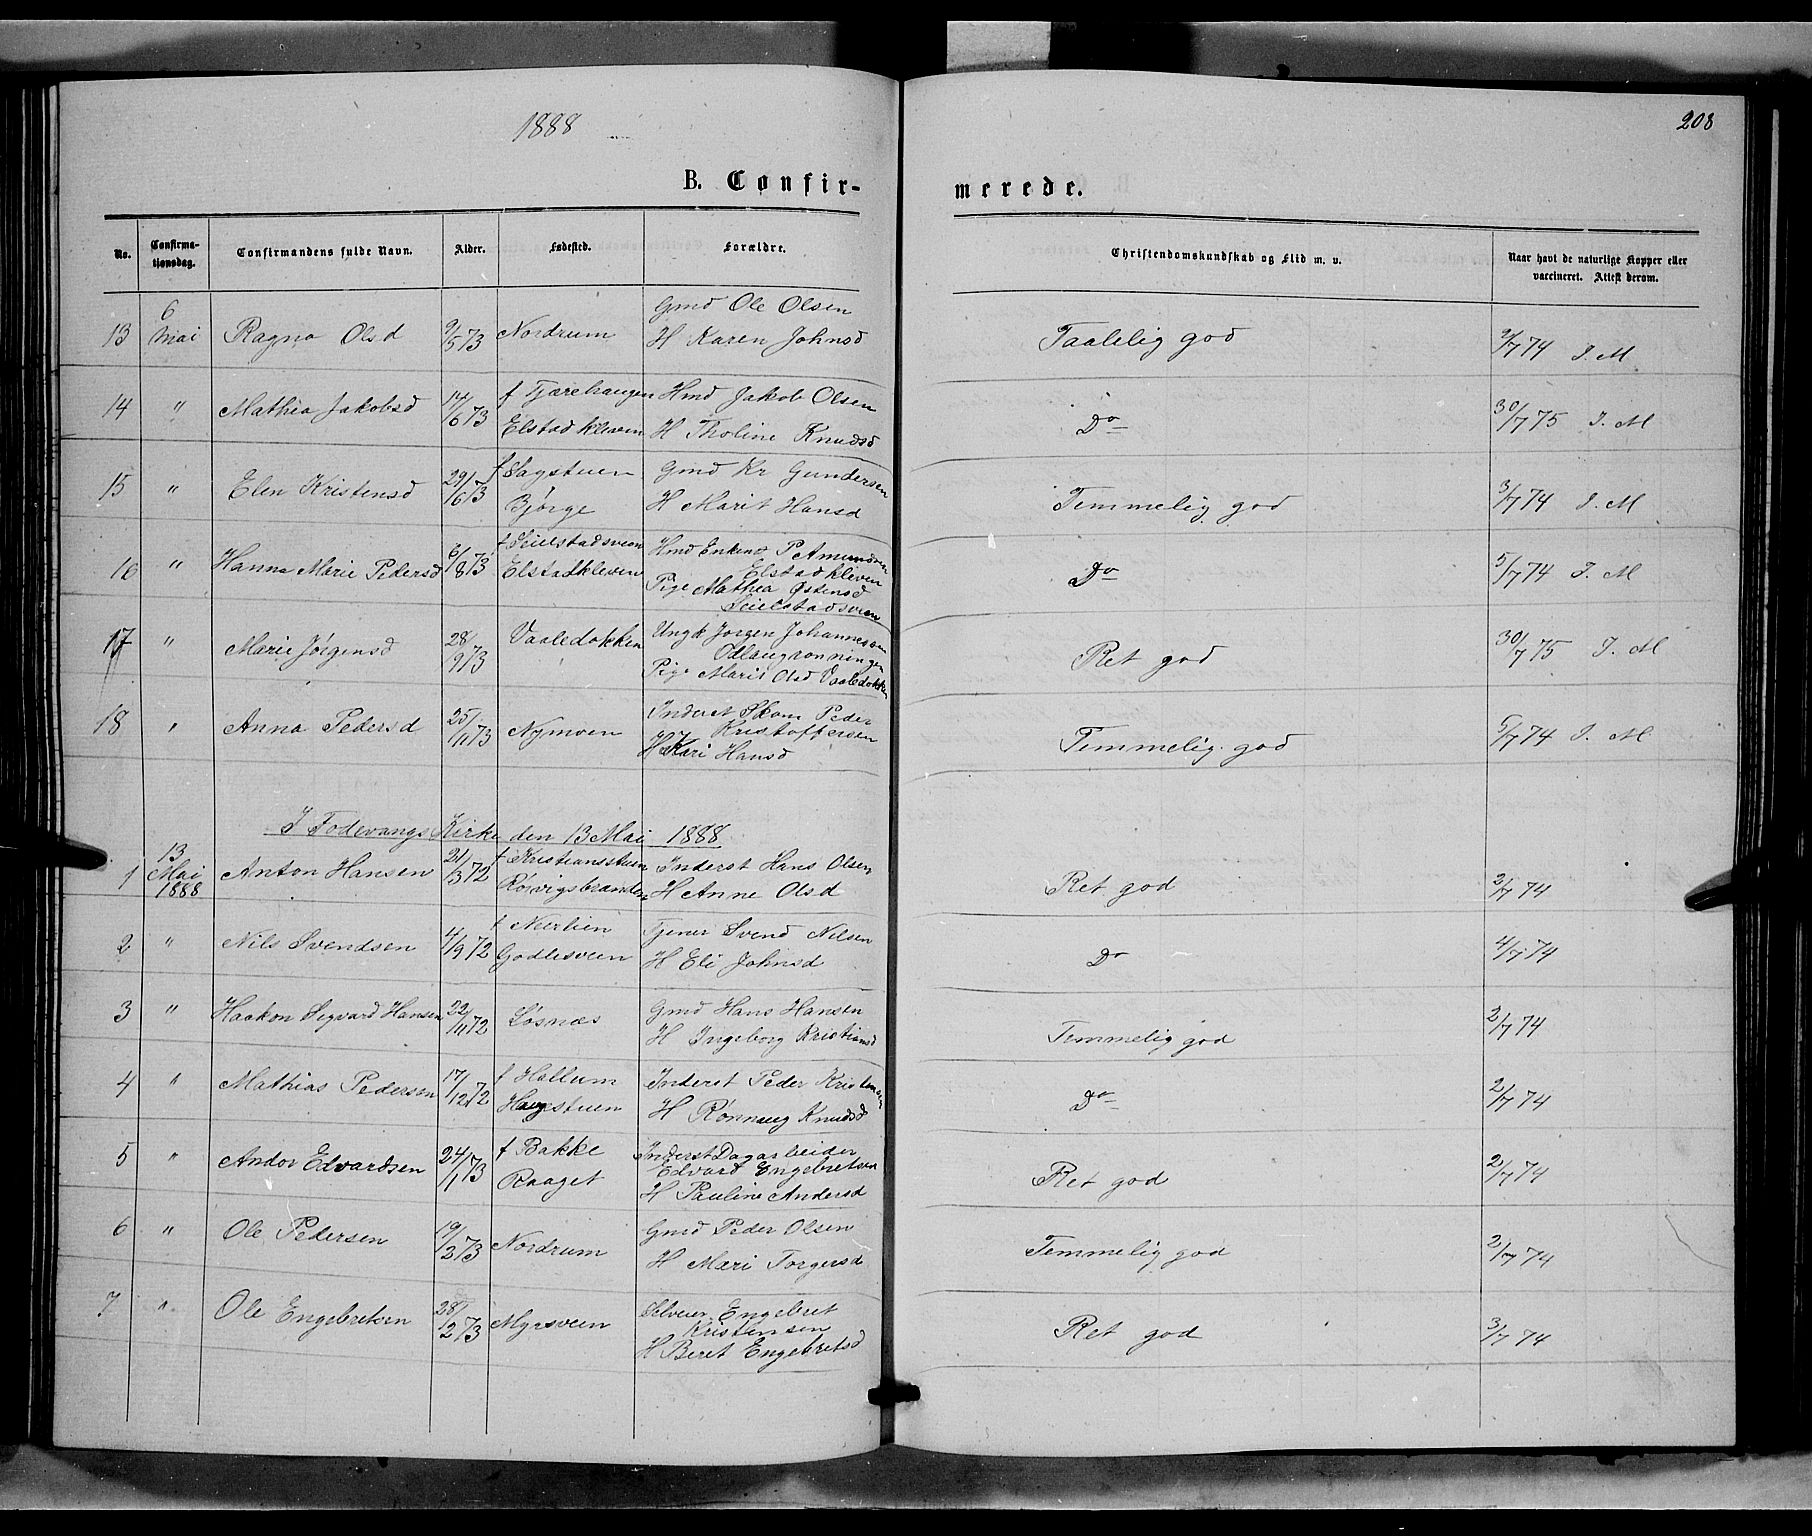 1888
208
B. Confir-
merede.
No.
Confirma-
tionsdag.
Confirmandens fulde Navn.
Alder.
Fødested.
Forældre.
Christendomskundskab og Flid m. v.
Naar havt de naturlige Kopper eller
vaccineret. Attest derom.
13 6 Mai Ragna Olsd 9/5 73 Nordrum Gmd Ole Olsen
H Karen Johnsd Taalelig god 9/7 74 I. M
14 " Mathea Jakobsd 14/6 73 f Tjærehaugen Hmd Jakob Olsen
Elstadkleven H Tholine Knudsd Do 30/7 75 I. M
15 " Elen Kristensd 29/6 73 f Sagstuen Gmd Kr Gundersen
Bjørge H Marit Hansd Temmelig god 3/7 74 I. M
16 " Hanna Marie Pedersd 6/8 73 f Seielstadsveen Hmd Enkem P Amundsen
Elstadkleven Elstadkleven
Pige Mathea Østensd
Seielstadsveen Do 5/7 74 I. M
17 " Marie Jørgensd 28/9 73 Vaaledokken Ungk Jørgen Johannessen
Odlaugrønningen
Pige Marit Olsd Vaaledokken Ret god 30/7 75 I. M
18 " Anna Pedersd 25/11 73 Nymoen Inderst Skom Peder
Kristoffersen
H Kari Hansd Temmelig god 5/7 74 I. M
I Fodevangs Kirke den 13 Mai 1888
1 13 Mai 1888 Anton Hansen 21/3 72 f Kristiansstuen Inderst Hans Olsen
Rørvigsbranden H Anne Olsd Ret god 2/7 74
2 " Nils Svendsen 4/9 72 f Nerlien Tjener Svend Nilsen
Godlesveen H Eli Johnsd Do 4/7 74
3 " Haakon Sigvard Hansen 22/11 72 Løsnæs Gmd Hans Hansen
H Ingeborg Kristiansd Temmelig god 2/7 74
4 " Mathias Pedersen 17/12 72 f Hallum Inderst Peder Kristensen
Haugstuen H Rønnaug Knudsd Do 2/7 74
5 " Andor Edvardsen 24/1 73 f Bakke Inderst Dagarbeider
Edvard Engebretsen
Raaget H Pauline Andersd Ret god 2/7 74
6 " Ole Pedersen 19/2 73 Nordrum Gmd Peder Olsen
H Mari Torgersd Temmelig god 2/7 74
7 " Ole Engebretsen 28/2 73 Myrsveen Selveier Engebret
Kristensen
H Beret Engebretsd Ret god 3/7 74